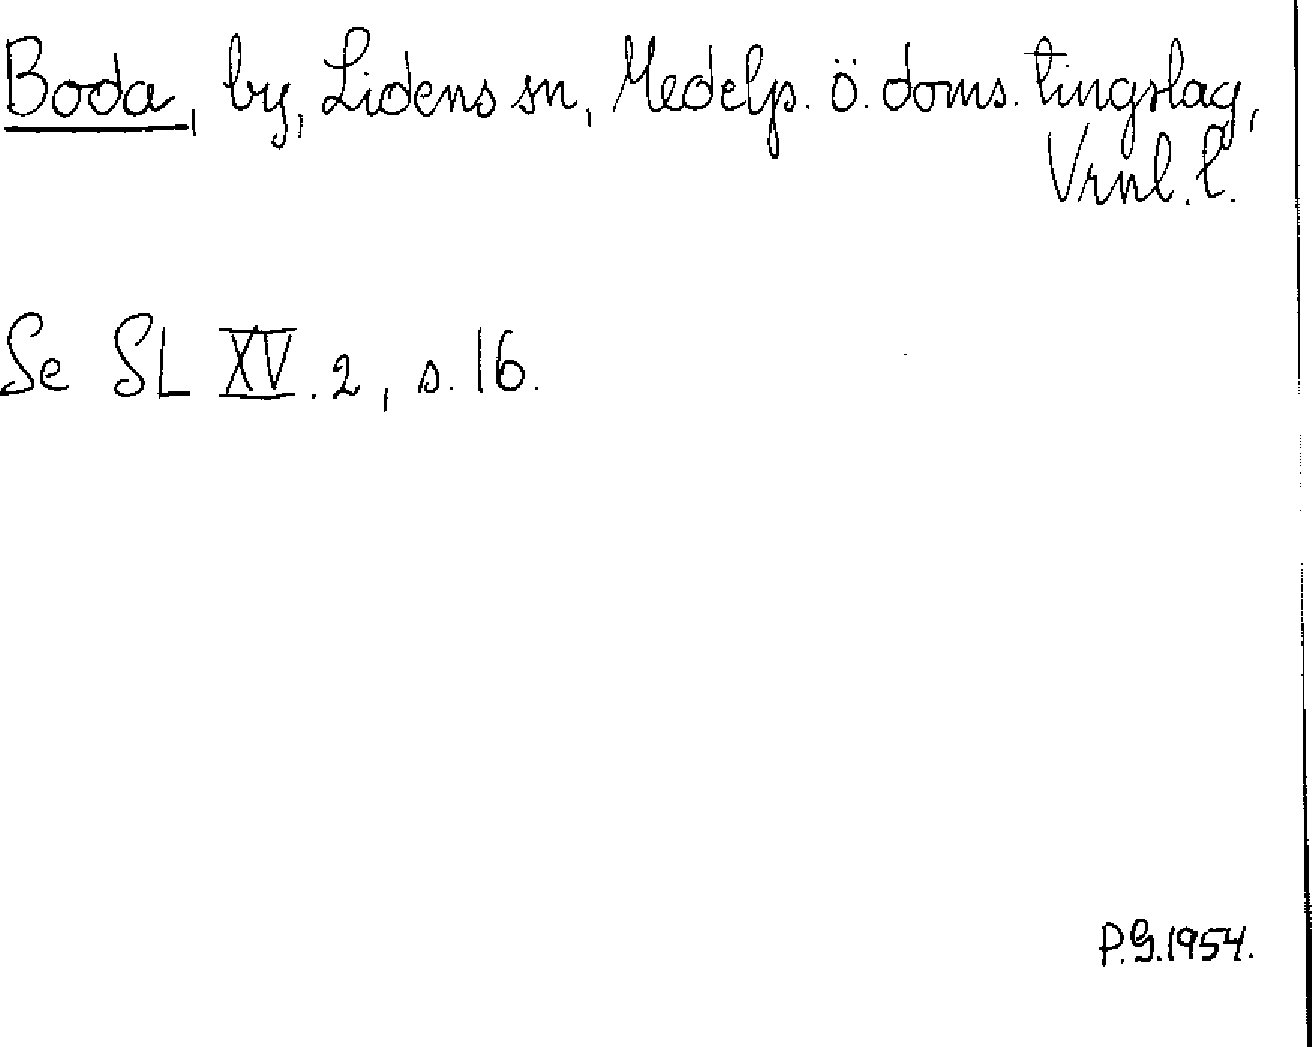 Boda, by, Lidens sn, Medelp. ö. doms. tingslag,
Vrnl. l.
Se SL XV.2, s. 16.
P.G. 1954.